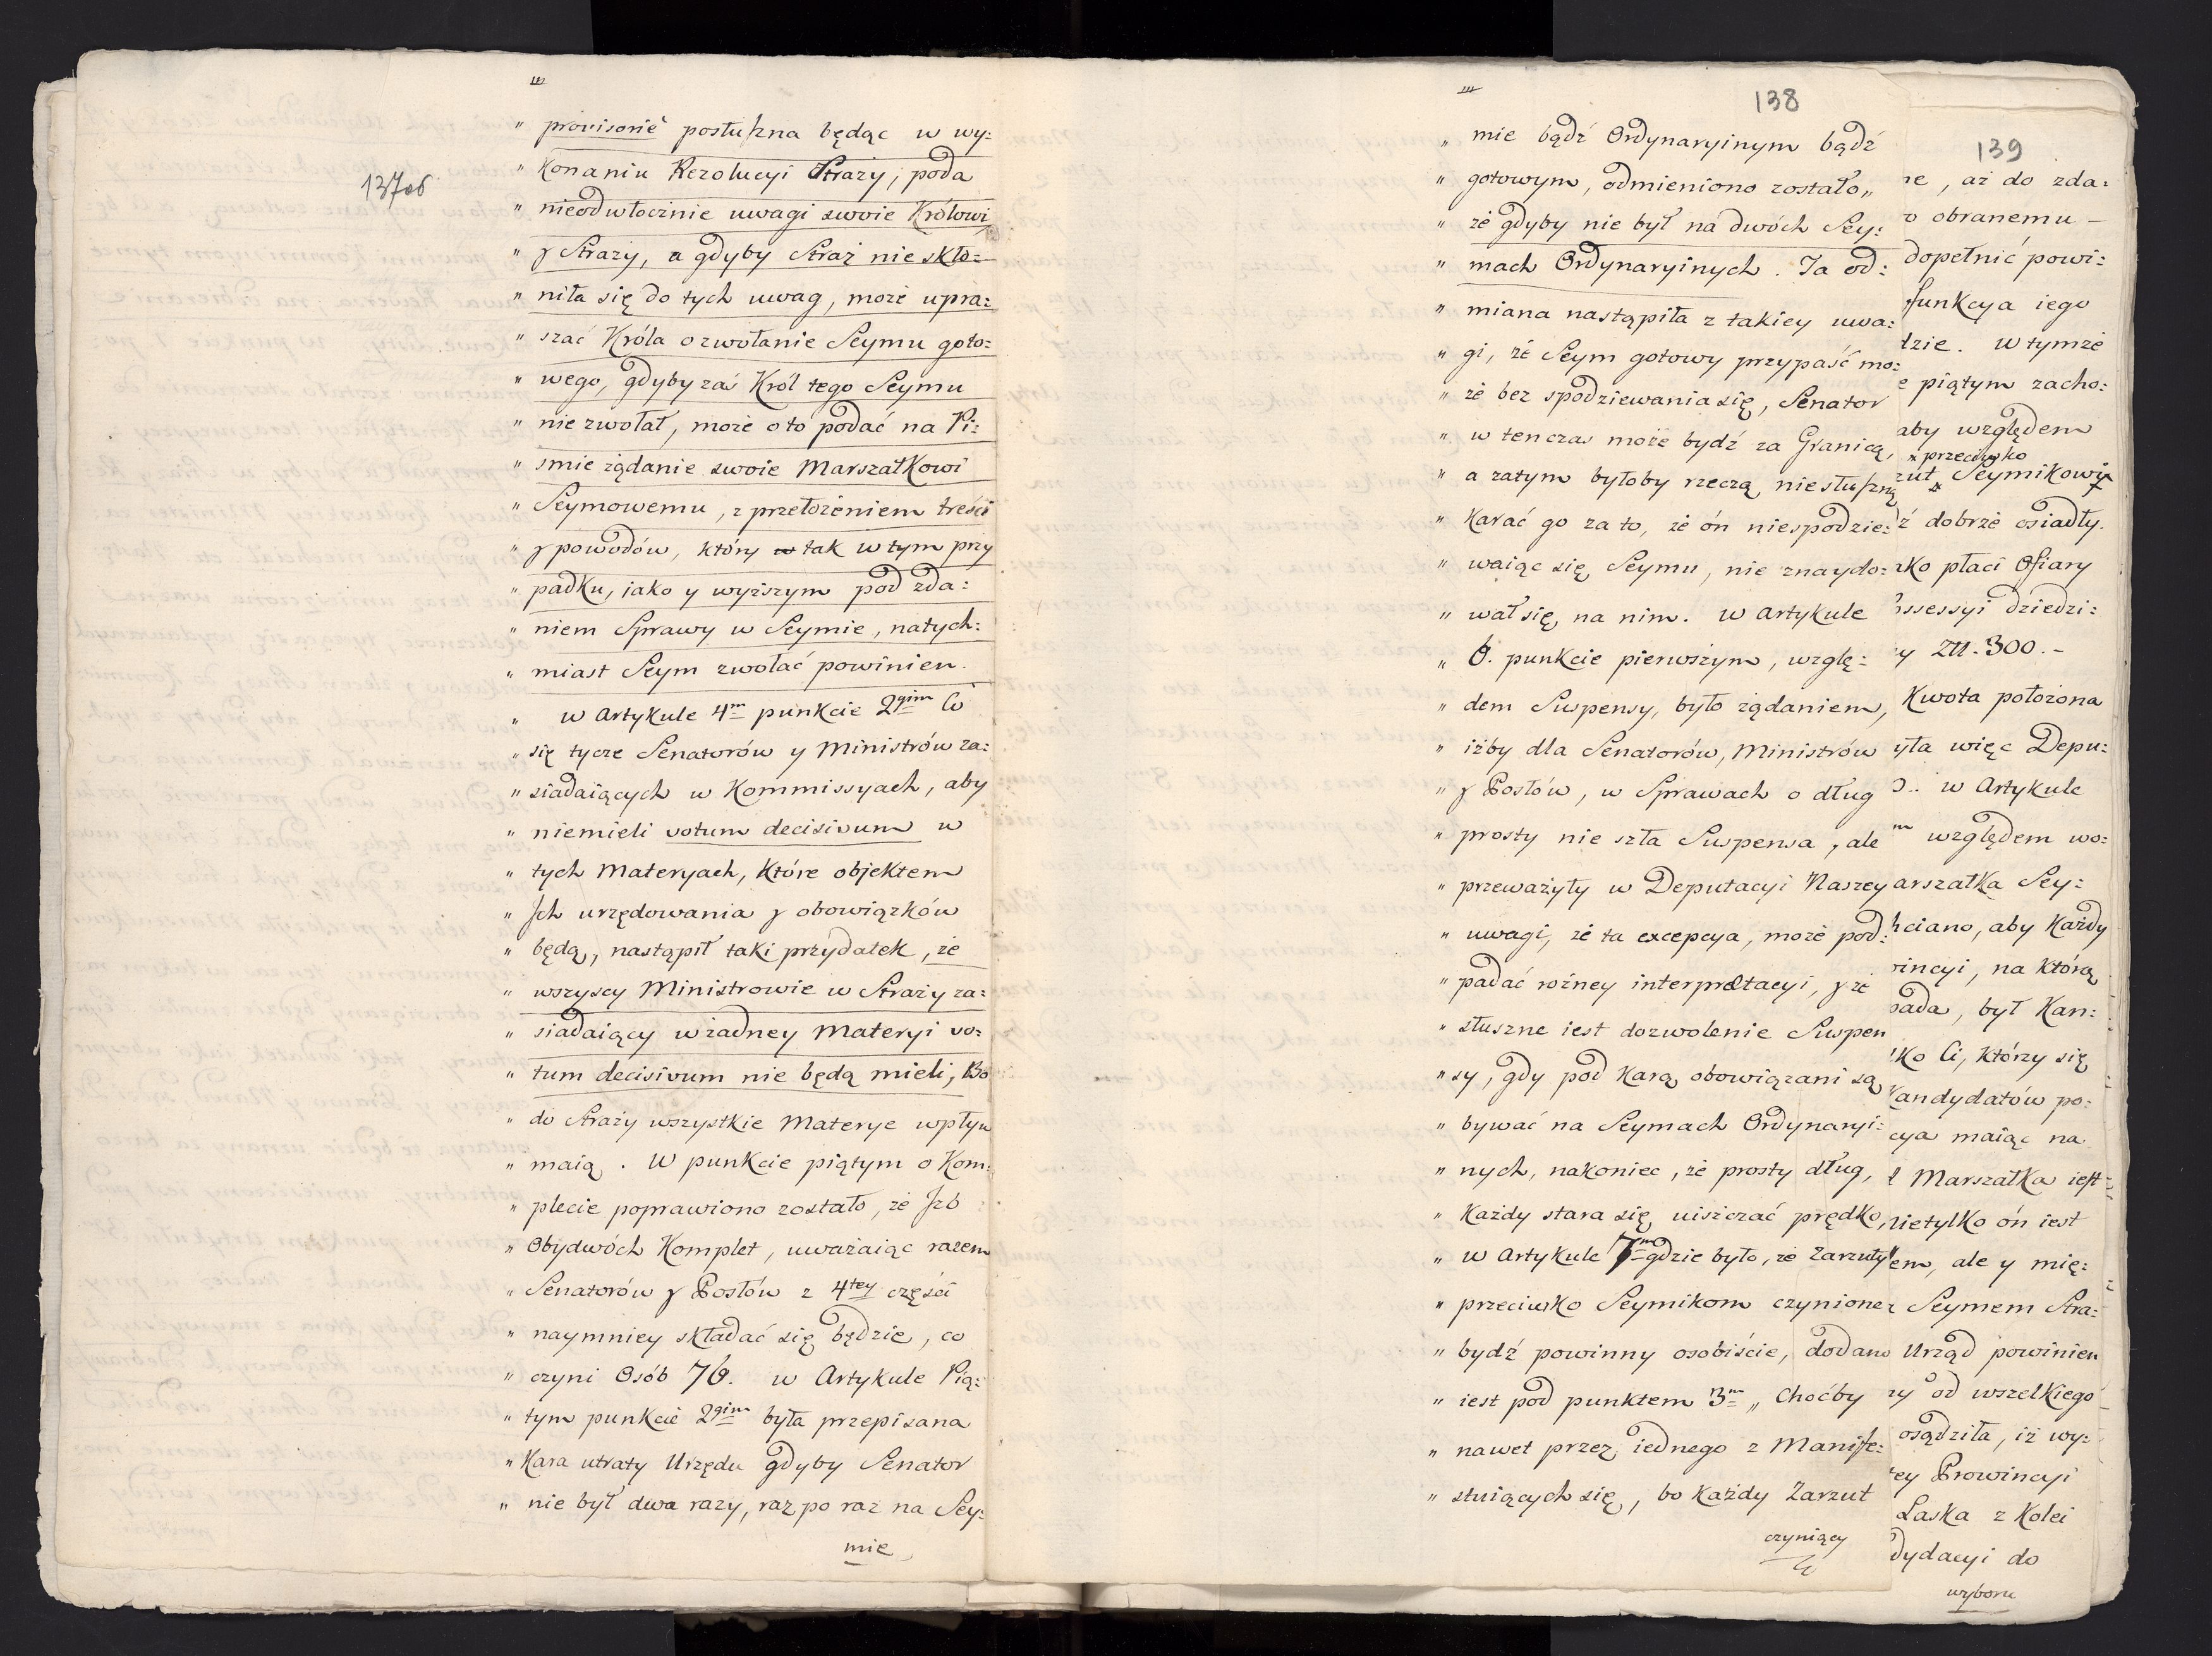 137ob
" provisorié posłuszna będąc w wy:
" konaniu Rezolucyi Straży, poda
" nieodwłocznie uwagi swoie Królowi
" y Straży, a gdyby Straż nie skło=
" niła się do tych uwag, może upra:
" szać Króla o zwołanie Seymu goto:
" wego, gdyby zaś Król tego Seymu
" nie zwołał, może o to podać na Pi:
" smie żądanie swoie Marszałkowi
" Seymowemu, z przełożeniem treści
" y powodów, który tak w tym przy
" padku, iako y wyższym pod zda:
" niem Sprawy w Seymie, natych:
" miast Seym zwołać powinien.
" w Artykule 4m punkcie 2gim Co
" się tycze Senatorów y Ministrów za:
" siadaiących w Kommissyach, aby
" niemieli votum decisivum w
" tych Materyach, które objektem
" Jch urzędowania y obowiązków
" będą, nastąpił taki przydatek, że
" wszyscy Ministrowie w Straży za:
" siadaiący w żadney Materyi vo:
" tum decisivum nie będą mieli, Bo
" do Straży wszystkie Materye wpływ
" maią. W punkcie piątym o Kom:
" plecie poprawiono zostało, że Jzb
" Obydwóch Komplet, uważaiąc razem
" Senatorów y Posłów z 4tey części
" naymniey składać się będzie, co
" czyni Osób 76. w Artykule Pią:
" tym punkcie 2gim była przepisana
" Kara utraty Urzędu gdyby Senator
" nie był dwa razy, raz po raz na Sey:
mie
138
" mie bądź Ordynaryinym bądź
" gotowym, odmieniono zostało„
" że gdyby nie był na dwóch Sey:
" mach Ordynaryinych. Ta od:
" miana nastąpiła z takiey uwa:
" gi, że Seym gotowy przypaść mo:
" że bez spodziewania się, Senator
" w ten czas może bydź za Granicą,
" a zatym byłoby rzeczą niesłuszną
" karać go za to, że ón niespodzie:
" waiąc się Seymu, nie znaydo:
" wał się na nim. w Artykule
" 6. punkcie pierwszym, wzglę:
" dem Suspensy, było żądaniem,
" iżby dla Senatorów, Ministrów
" y Posłów, w Sprawach o dług
" prosty nie szła Suspensa, ale
" przeważyły w Deputacyi Naszey
" uwagi, że ta excepcya, może pod:
" padać rożney interpretacyi, y że
" słuszne iest dozwolenie Suspen
" sy, gdy pod karą obowiązani są
" bywać na Seymach Ordynaryi:
" nych, nakoniec, że prosty dług,
" każdy stara się uiszczać prędko,
" w Artykule 7m gdzie było, że Zarzuty
" przeciwko Seymikom czynione
" bydź powinny osobiście, dodano
" iest pod punktem 3m „ Choćby
" nawet przez iednego z Manife:
" stuiących się, bo każdy Zarzut
czyniący
139
ne, aż do zda:
o obranemu –
dopełnić powi:
funkcya iego
dzie. W tymże
e piątym zacho:
aby względem
x przeciwko
zut x Seymikowi
ź dobrze osiadły.
ko płaci Ofiary
ossessyi dziedzi:
y Złł. 300.–
Kwota położona
yła więc Depu:
O.. w Artykule
m względem wo:
arszałka Sey:
hciano, aby Każdy
wincyi, na którą
pada, był Kan:
ko Ci, którzy się
Kandydatów po:
cya maiąc na
ł Marszałka iest
nietylko ón iest
em, ale y mię:
z Seymem Stra:
Urząd powinien
ry od wszelkiego
osądziła, iż wy:
tey Prowincyi
Laska z Kolei
dydacyi do
wyboru